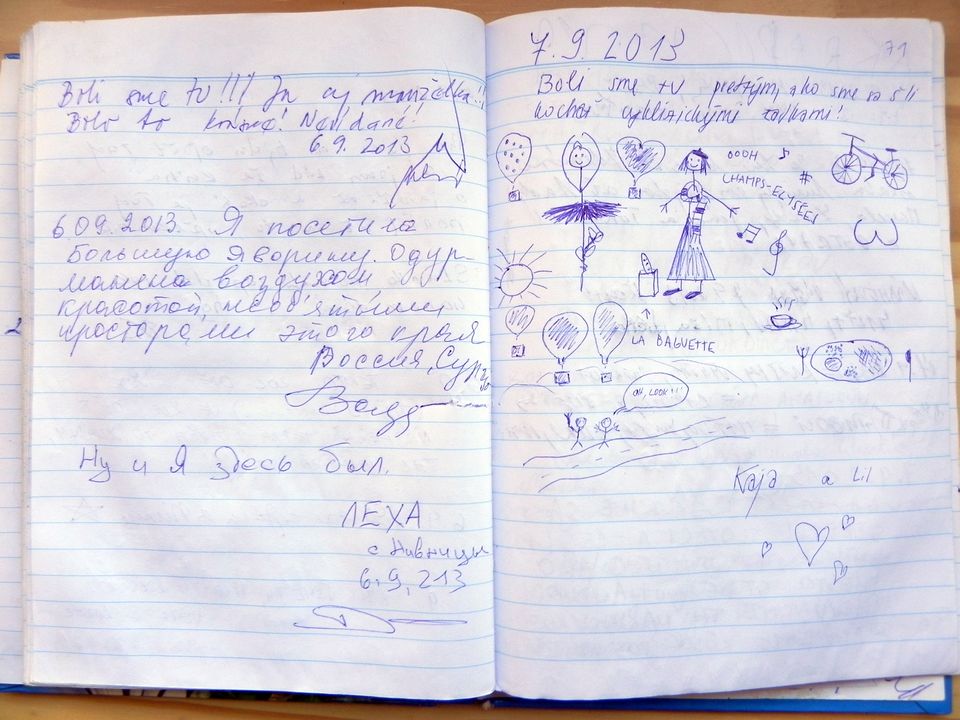 Boli sme tu!!! Ja aj manželka!!
Bolo to Neradané!
6.9.2013
6.09.2013. Я посетила
Большую Яворину. Одур-
манена воздухом
красотой, необъятными
просторами этого края
Россия, Сургут
Ну и я здесь был.
ЛЕХА
с Нивницы
6,9,213
7.9.2013
71
Boli sme tu predtým, ako sme sa šli
kochať cyklistickými
OOOH
CHAMPS-ELYSÉE!
#
LA BAGUETTE
OH, LOOK!!!
Kaja a Lil